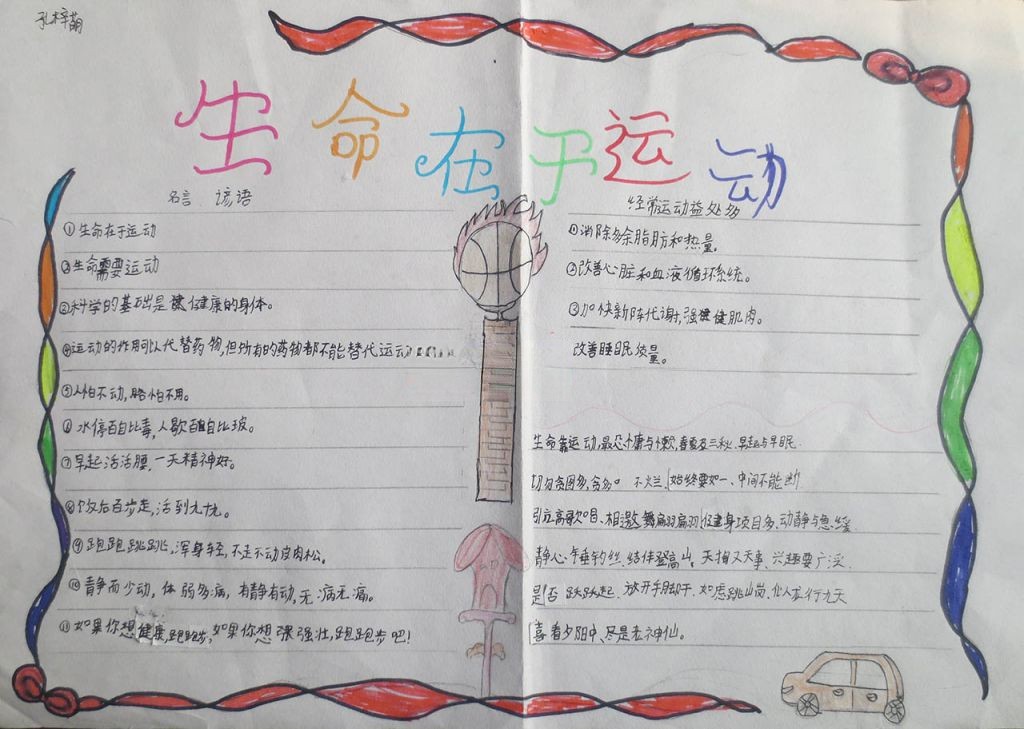 孔梓萌
生命在于运动
名言 谚语
①生命在于运动
②生命需要运动
③科学的基础是健康的身体。
④运动的作用可以代替药物,但所有的药物都不能替代运动
⑤人怕不动,脑怕不用。
⑥水停百日比毒,人歇百日比玻。
⑦早起活活腰,一天精神好。
⑧饭后百步走,活到九十九。
⑨跑跑跳跳,浑身轻,不走不动皮肉松。
⑩青静而少动,体弱多病,有静有动,无病无痛。
⑪如果你想健康,跑跑步,如果你想强强壮,跑跑步吧!
经常运动益处多
①消除多余脂肪和热量。
②改善心脏和血液循环系统。
③加快新陈代谢,强健肌肉。
改善睡眠质量。
生命靠运动,最忌慵与懒,春夏及三秋,早起与早眠
切勿贪图多,贪多 不烂,始终要如一、中间不能断
引吭高歌唱、相邀舞扁羽扁羽 健身项目多,动静与急缓
静心 垂钓丝,结伴登高山。天相又天事,兴趣要广泛
跃跃起、放开手脚干,如虎跳山岗
喜看夕阳中、尽是老神仙。